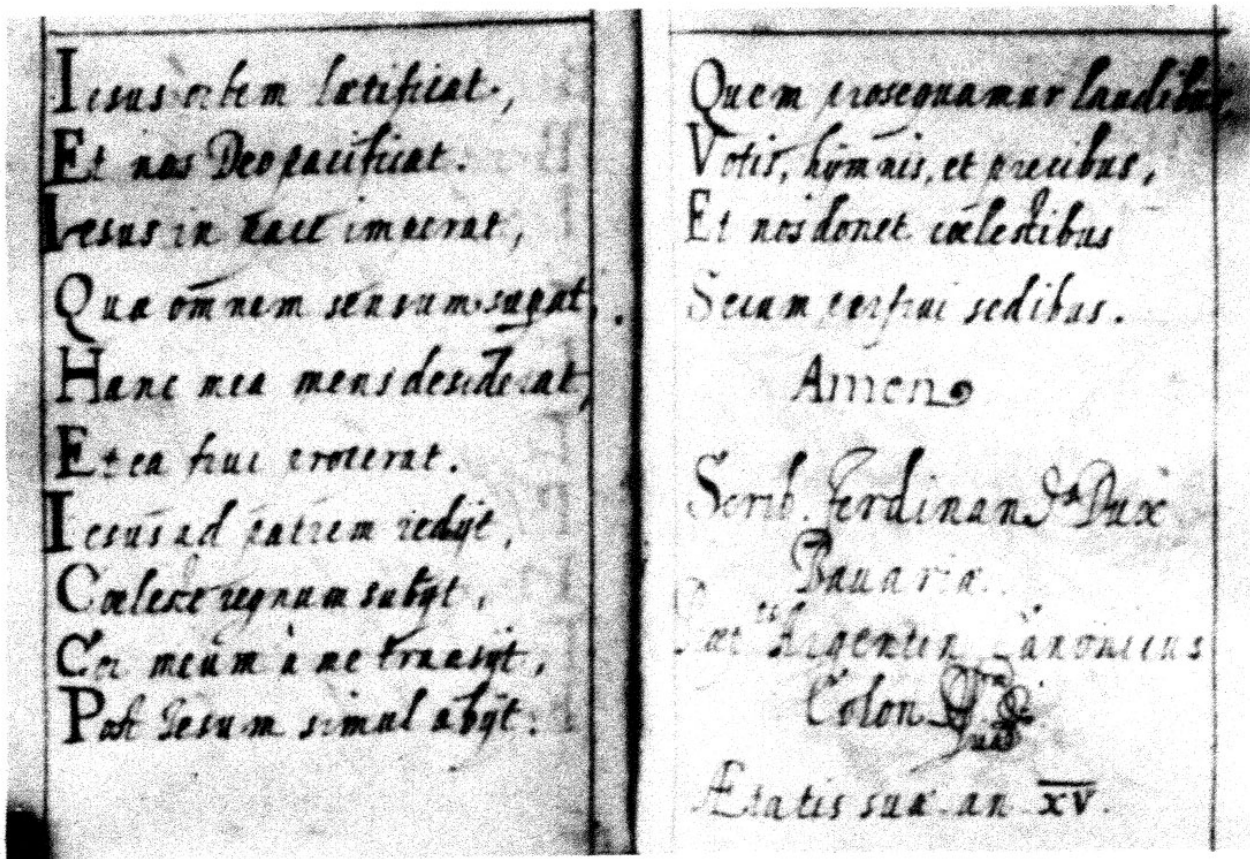 Iesus orbem lætificat,
Et nos Deo pacificat.
Iesus in pace imperat,
Quæ om̄nem sensum supat,
Hanc mea mens desiderat,
Et ea frui properat.
Iesus ad patrem redijt,
Cœleste regnum subijt,
Cor meum à me transijt,
Post Iesum simul abijt.
Quem prosequamur laudibus,
Votis, hym̄nis, et precibus,
Et nos donet cœlestibus
Secum perfrui sedibus.
Amen
Scrib. Ferdinandꝰ Dux
Bauariæ.
Argentin Canonicus
Colon
Ætatis suæ an XV.